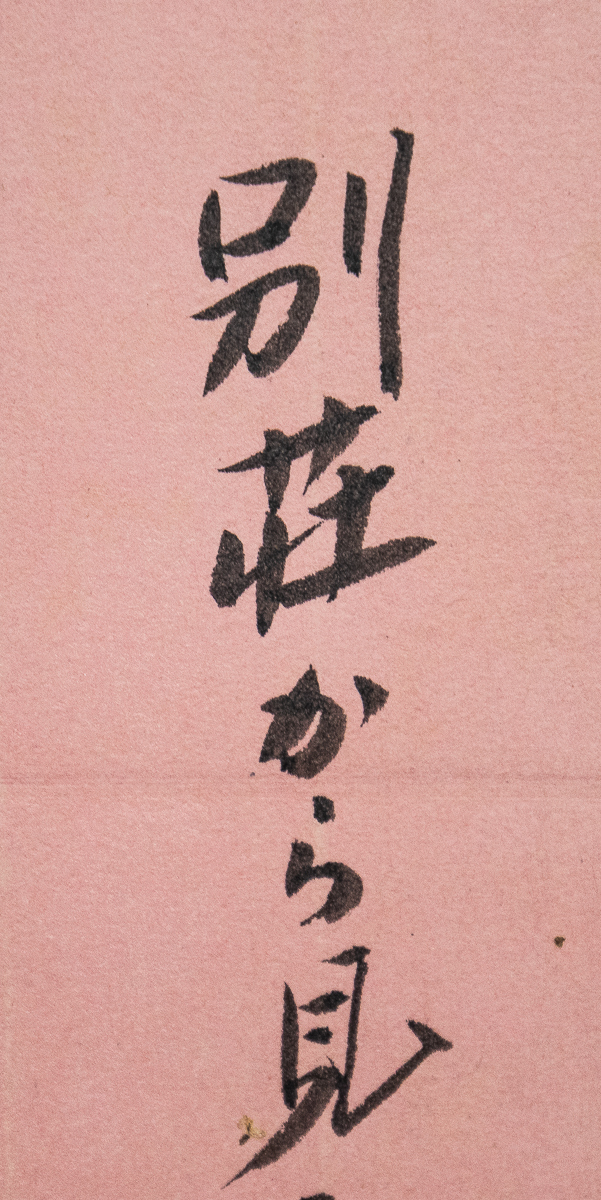 別荘から見